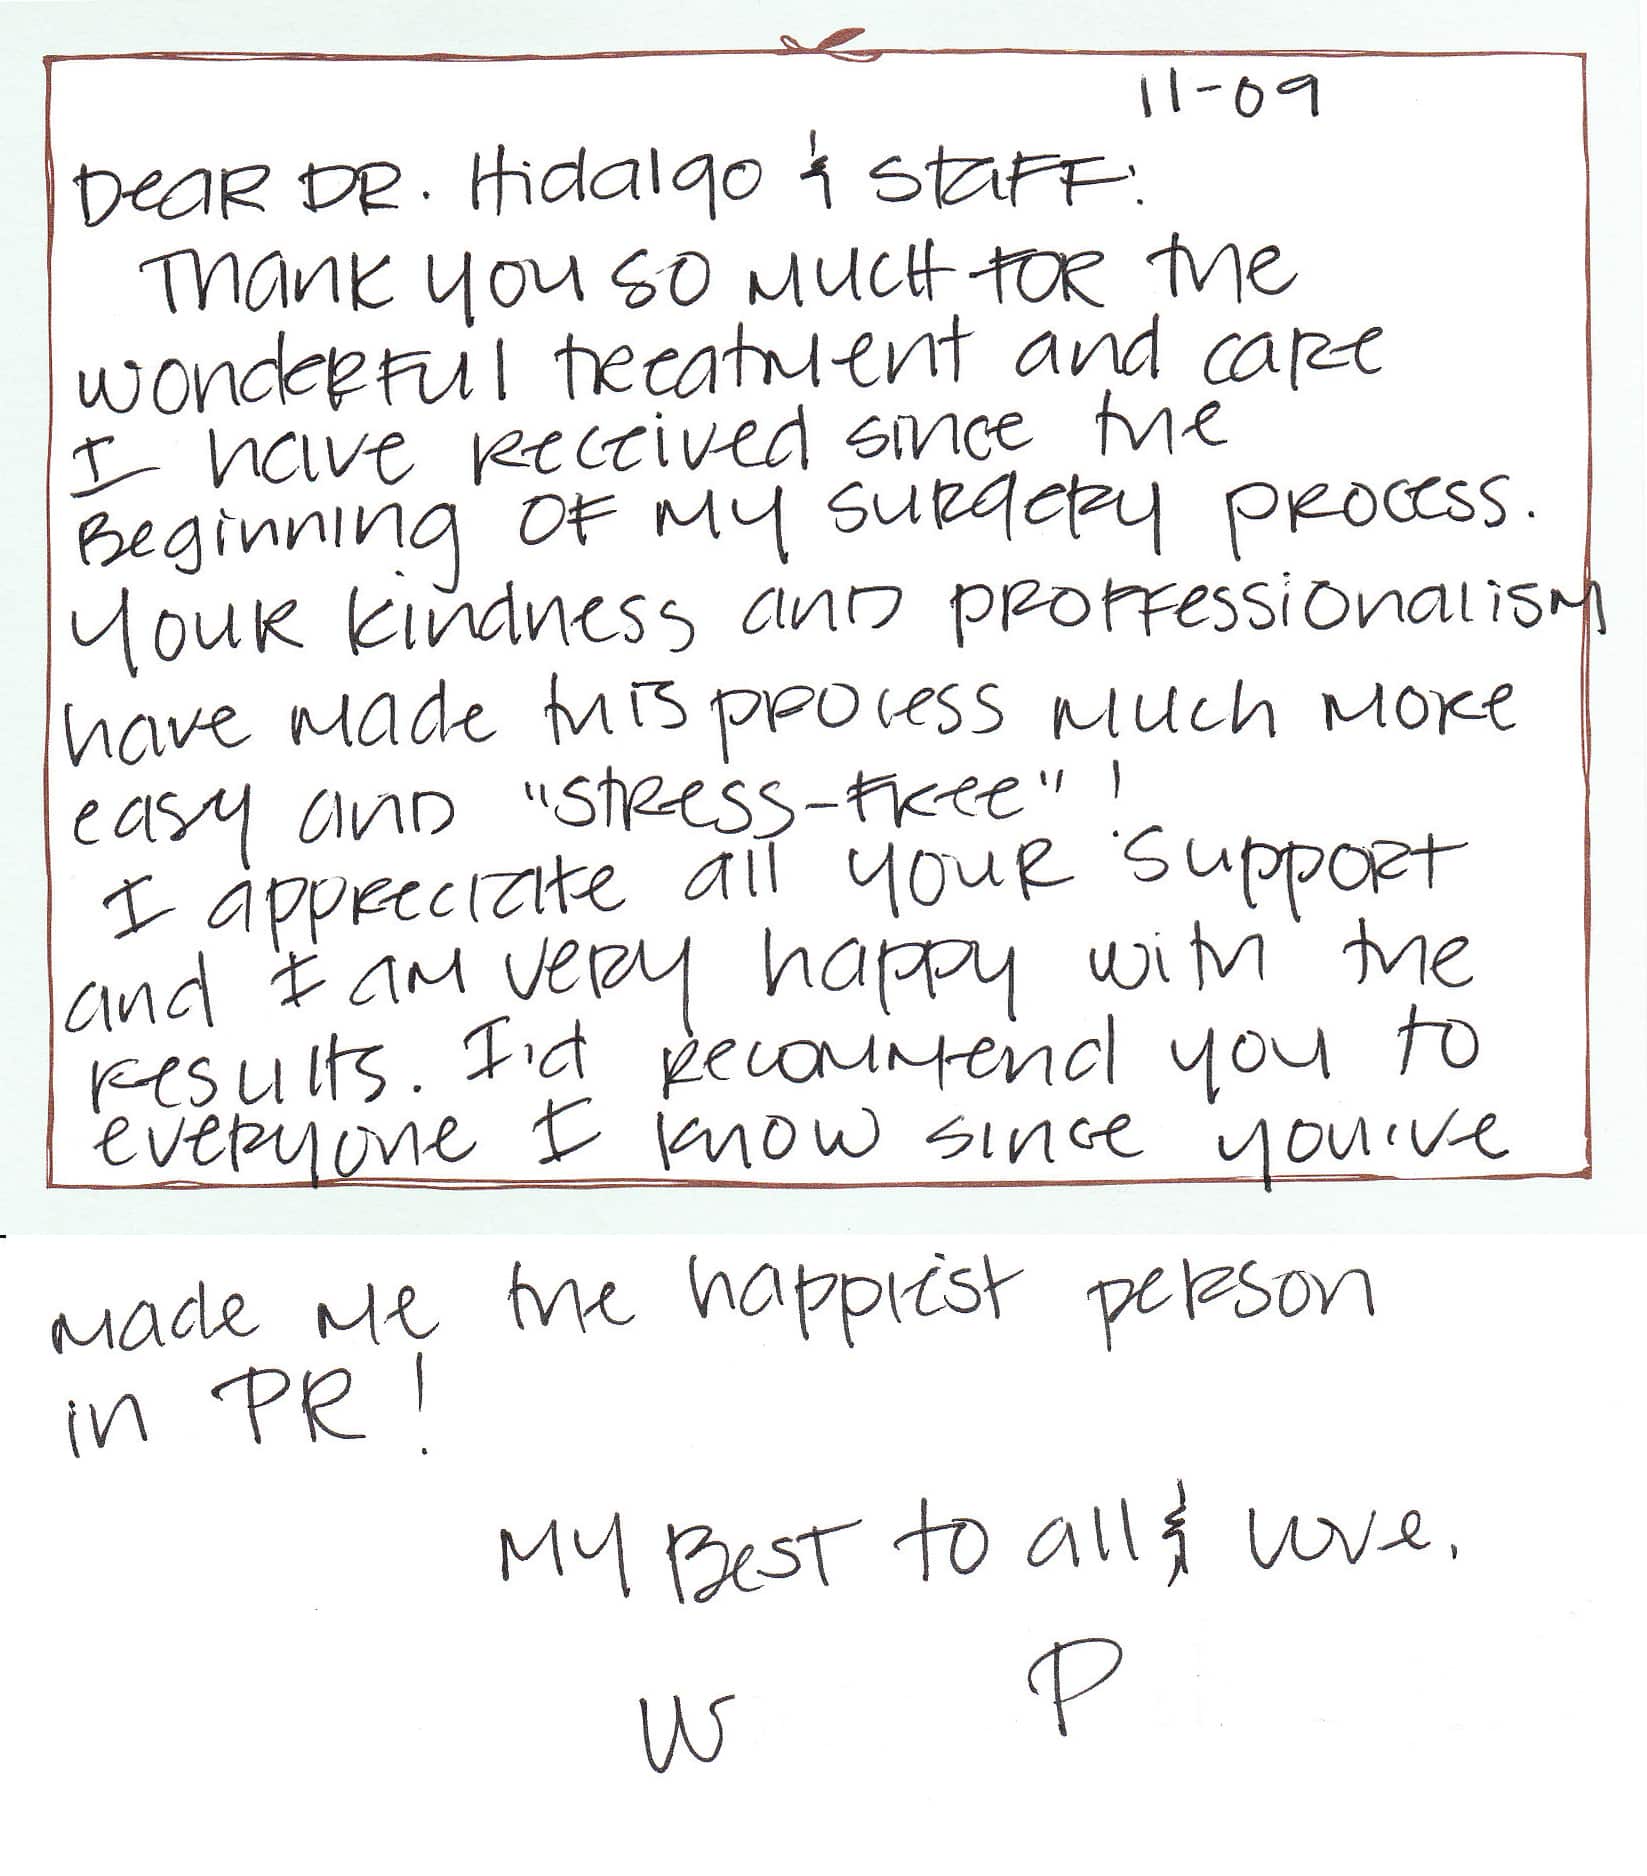 11-09
Dear Dr. Hidalgo & Staff:
Thank you so much for the
wonderful treeatment and care
I have received since the
Beginning of my surgery process.
Your kindness and proffessionalism
have made this process much more
easy and "stress-free"!
I appreciate all your support
and I am very happy with the
results. I'd recommend you to
everyone I know since you've
made me the happiest person
in PR!
My Best to all & love,
W P